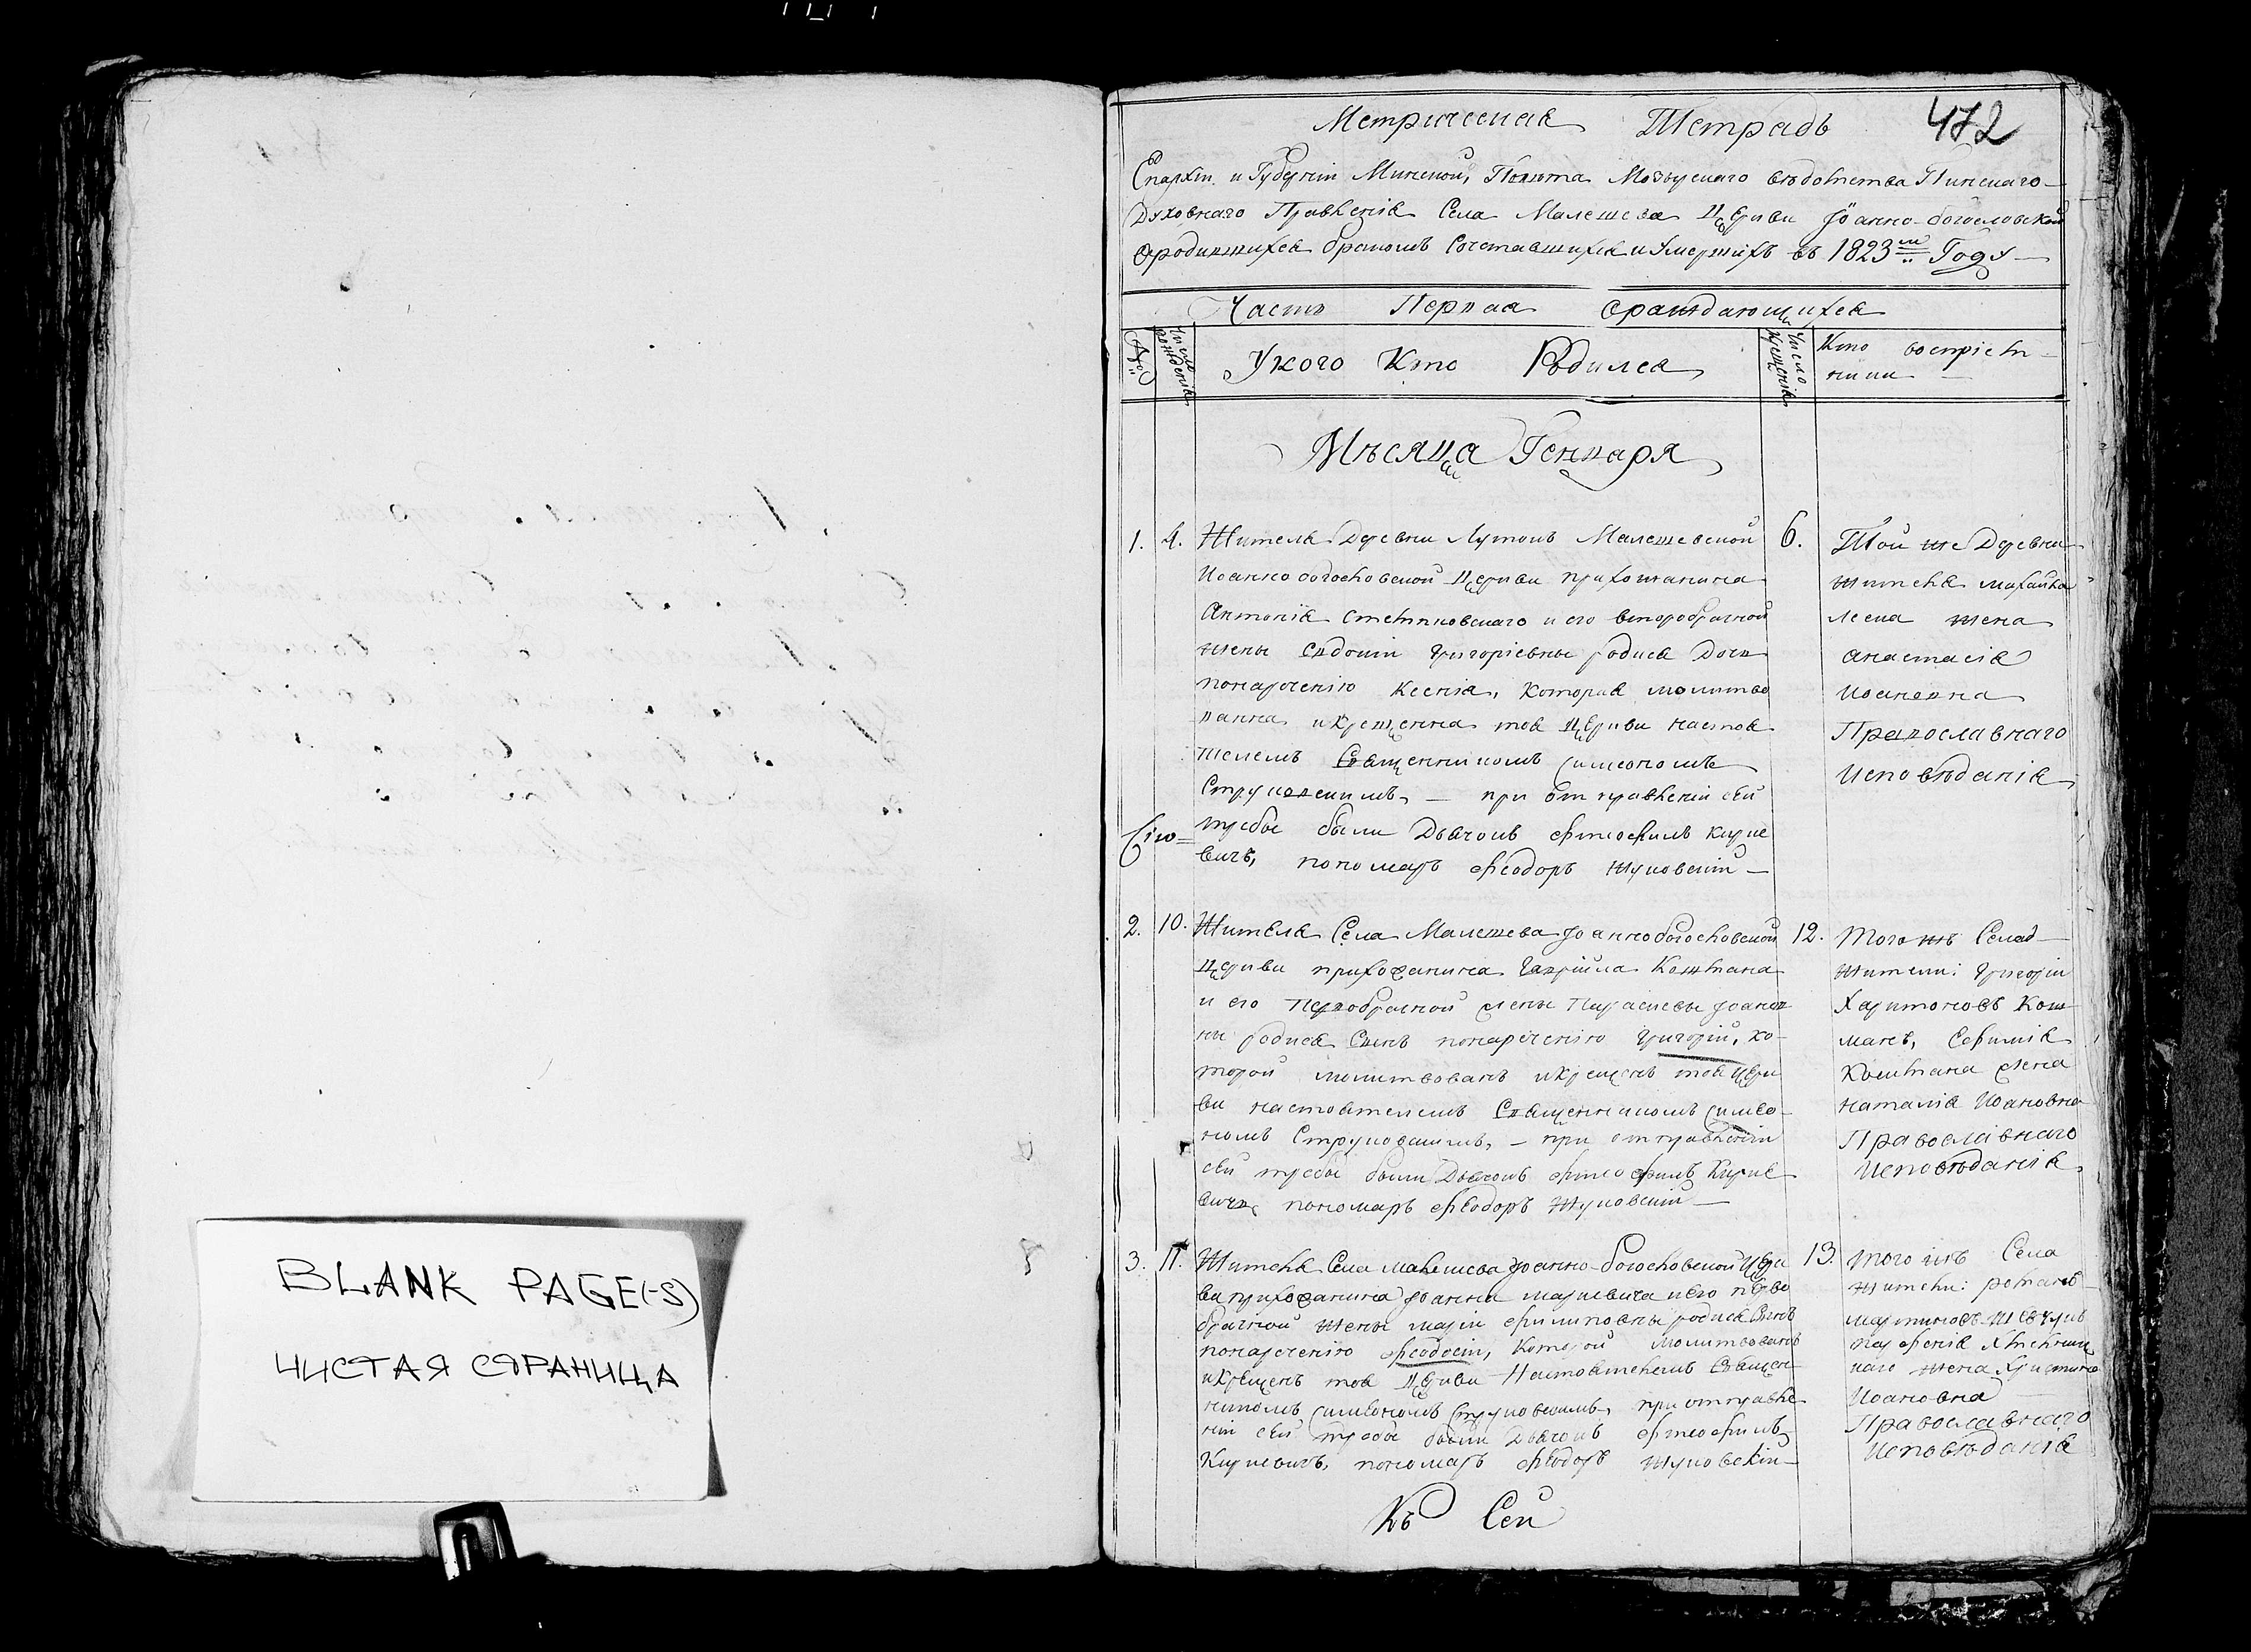 BLANK PAGE(-S)
ЧИСТАЯ СТРАНИЦА
Метрическая Тетрадь 472
Епархіи и Губерніи Минской, Повѣта Мозырскаго вѣдомства Пинскаго
Духовнаго Правленія Села Малешева Церкви Іоанно-богословской
ородившихся бракомъ Сочетавшихся и Умершихъ въ 1823мъ Году
Часть Первая ораждающихся
№
Число рожденія
Укого Кто Родился
Число Крещенія
Кто воспріем-
ники
Мѣсяца Генваря
1. 4. Жителя Деревни Лутокъ Малешевской
Иоаннобогословской Церкви прихожанина
Антонія и его второбрачной
жены Евдокіи Григоріевны родися Дочь
понареченію Ксенія, Которая молитво
ванна икрещенна тоя Церкви настоя
телемъ Священникомъ Симеономъ
Струковскимъ, — при отправленіи сей
требы были Дьячокъ Фтеофилъ Кирке
вичъ, пономарь Феодоръ Жуковскій —
Сію=
6. Той же Деревни
жителя
жена
Анастасія
Иоановна
Православнаго
Исповѣданія
2. 10. Жителя Села Малешева Іоаннобогословской
Церкви прихожанина Гавріила Кошмана
и его Первобрачной жены Параскевы Іоанов
ны родися Сынъ понареченію Григорій, ко-
торой молитвованъ икрещенъ тоя Церк
ви настоятелемъ Священникомъ Симео-
номъ Струковскимъ, — при отправленіи
сей требы были Дьячокъ Фтеофилъ Кирке
вичъ, пономарь Феодоръ Жуковскій —
12. Того жъ Села
жители: Григорій
Харитоновъ Кош
манъ,
Кошмана жена
Наталія Иоановна
Православнаго
Исповѣданія
3. 11. Жителя Села Малешева Іоанно-богословской Церк
ви прихожанина Іоанна и его перво
брачной жены Маріи Филиповны родися Сынъ
понареченію Феодосій, Которой молитвованъ
икрещенъ тоя Церкви Настоятелемъ Священ
никомъ Симеономъ Струковскимъ, при отправле
ніи сей требы были Дьячокъ Фтеофилъ
Киркевичъ, пономарь Феодоръ Жуковскій —
13. Того жъ Села
жители: Романъ
Мартиновъ
жена Христина
Иоановна
Православнаго
Исповѣданія
Къ Сей